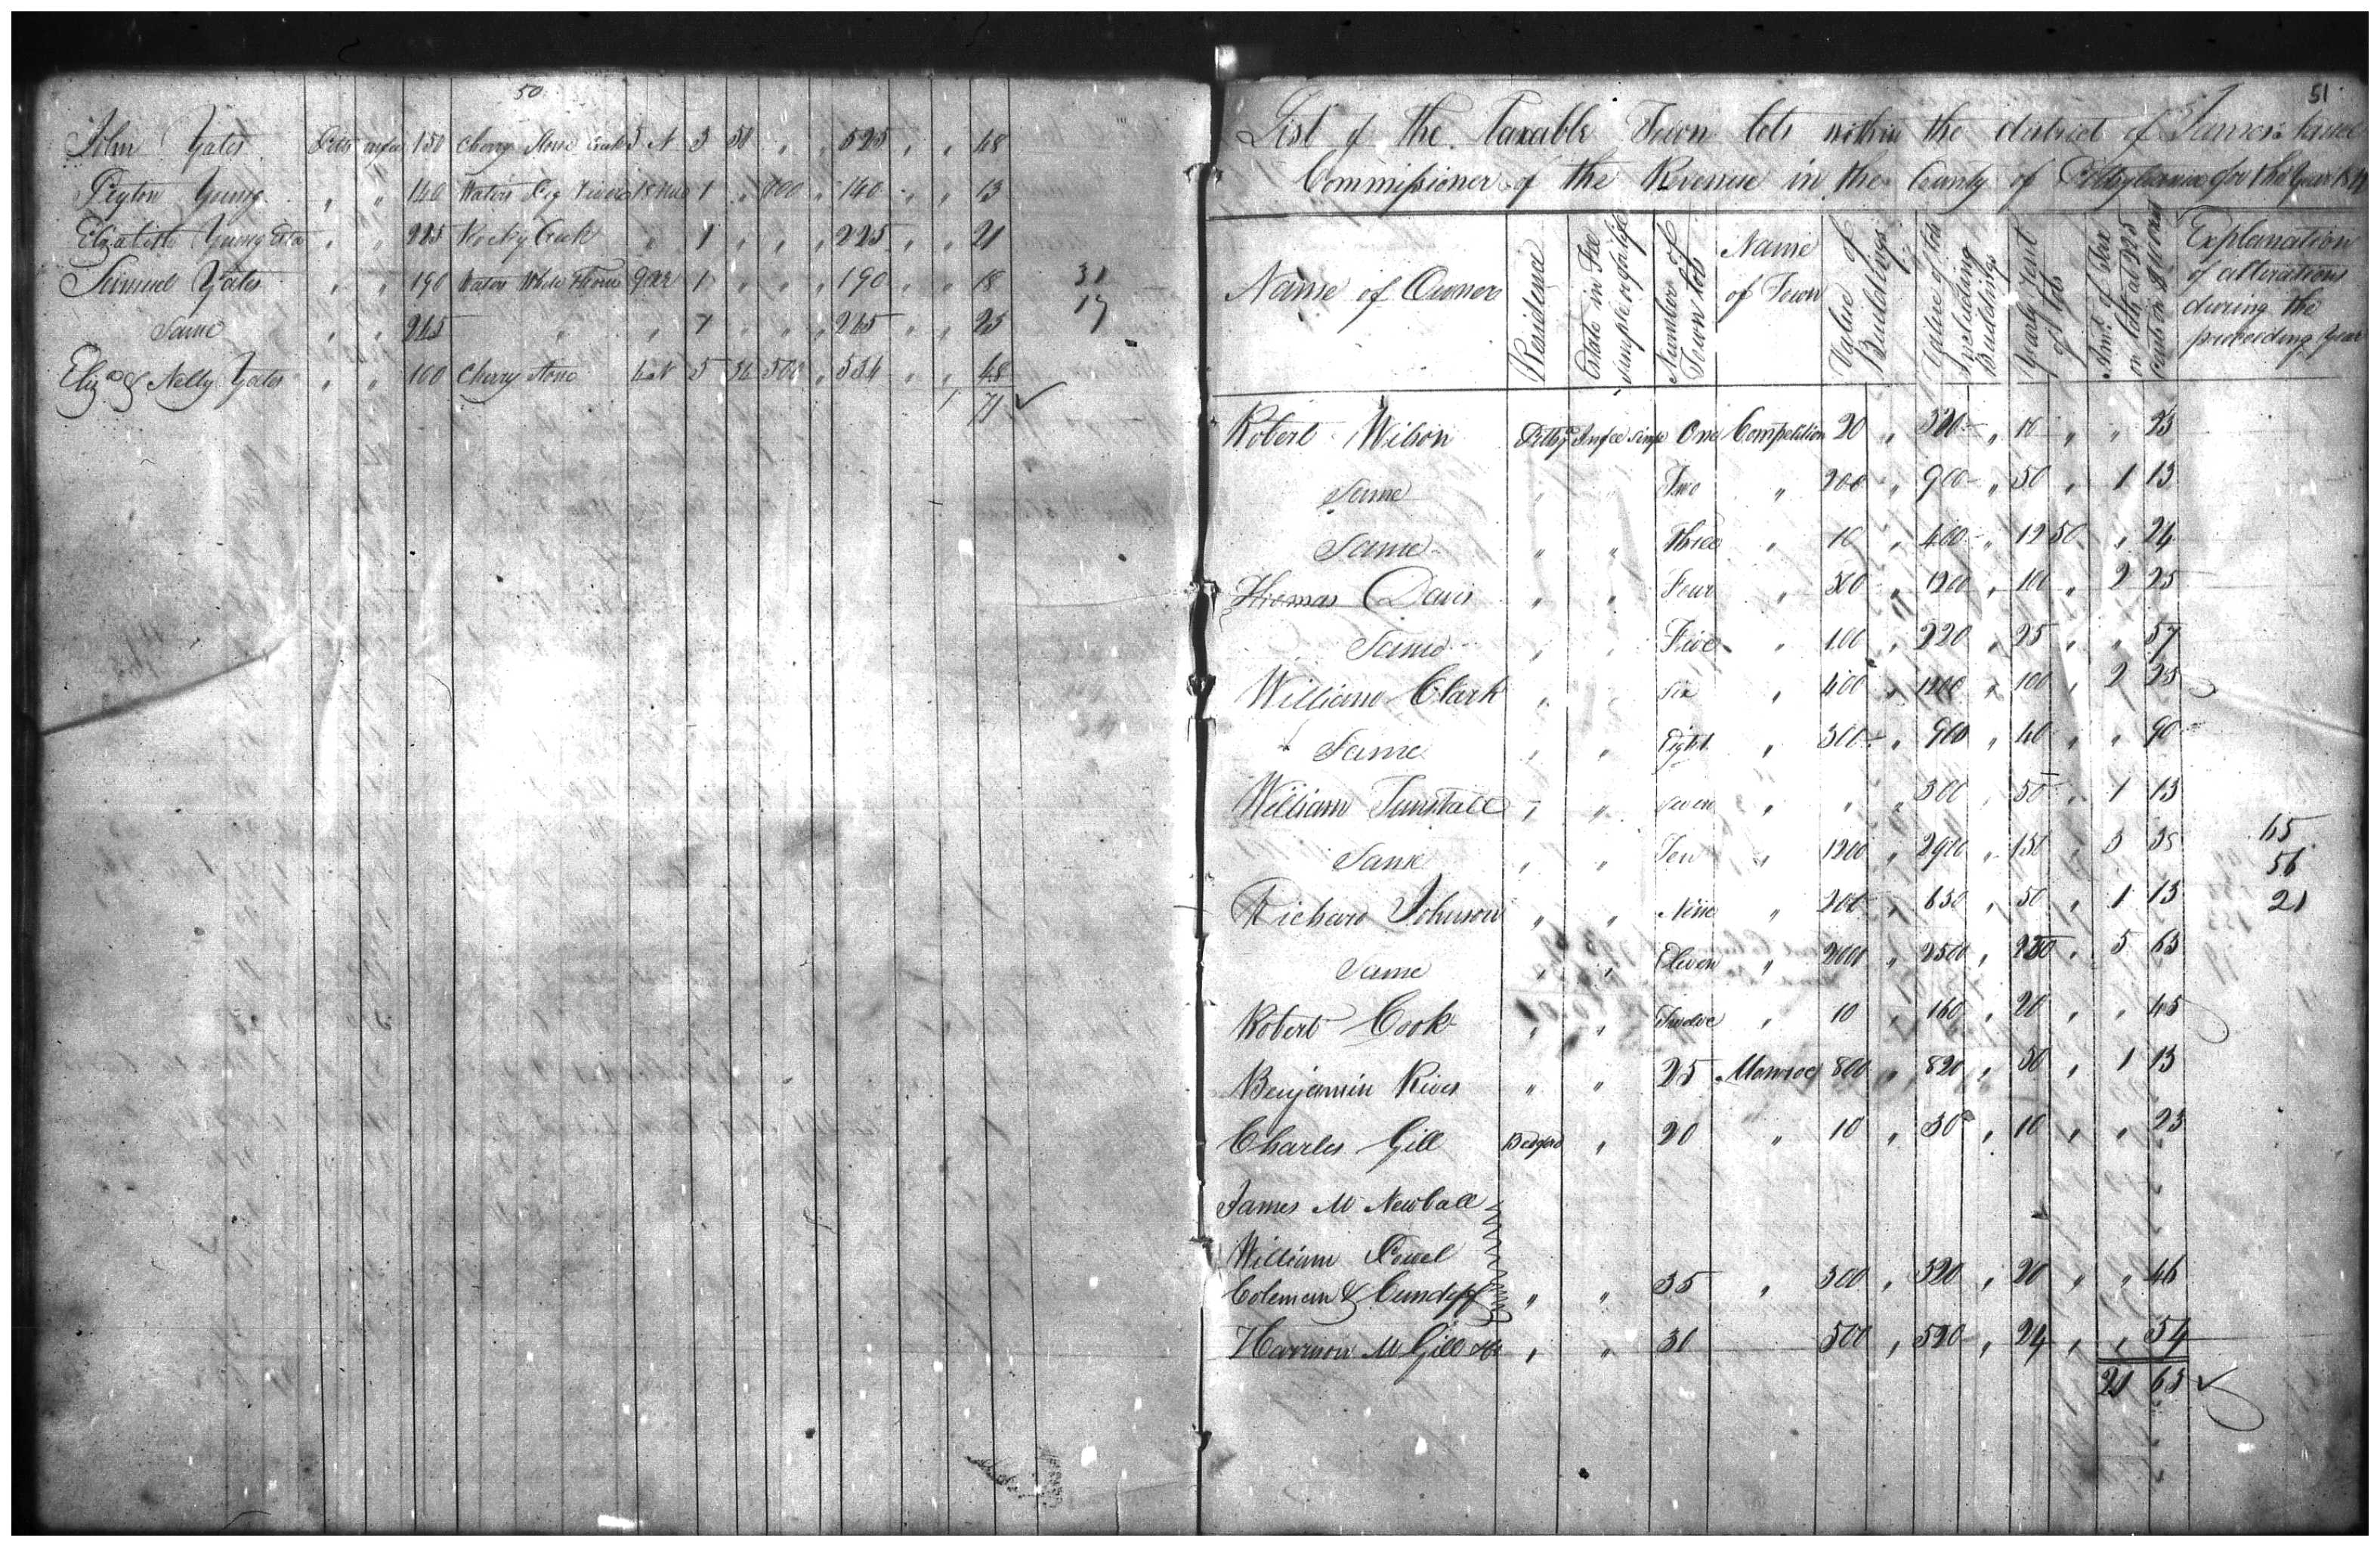 50
John Yates Pitts infee 150 Cherry Stone Creek 5 N 3 50 " " 525 " " 48
Peyton Young " " 140 Waters Pig River 18 1 " " 140 " " 13
Elizabeth Young " " 225 Rocky Creek " 1 " " " 225 " " 21
Samuel Yates " " 190 Waters White Thorn 1 " " " 190 " " 18
Same " " 265 " " 1 " " " 265 " " 25
Eliza & Nelly Yates " " 100 Cherry Stone 5 34 500 " 534 " " 48
1 71
31
17
51
List of the Taxable Town lots within the district of
Commissioner of the Revenue in the County of Pittsylvania for the Year
Name of Owner
Residence
Estate in Fee simple or for life
Numbers of Town lots
Name of Town
Value of Buildings
Value of lots including Buildings
Yearly rent of lots
Amt. of Tax on lots at 2.25
Explanation of alterations during the preceeding Year
Robert Wilson Pittsa Infee simple One Competition 20 " " 10 " " 23
Same " " Two " 200 " 900 " 50 " 1 13
Same " " Three " 10 " 400 " 12 50 " 24
Thomas Davis " " Four " 300 " 1200 " 100 " 2 25
Same " " Five " 100 " 220 " 25 " " 57
William Clark " " Six " 400 " 1200 " 100 " 2 25
Same " " Eight " 300 " 900 " 40 " " 90
William Tunstall " " Seven " " " 300 " 50 " 1 13
Same " " Ten " 1200 " 2900 " 150 " 3 38
Richard Johnson " " Nine " 200 " 650 " 50 " 1 13
Same " " Eleven " 2000 " 2500 " 250 " 5 63
Robert Cook " " Twelve " 10 " 160 " 20 " " 45
Benjamin Rives " " 25 Monroe 800 " 820 " 50 " 1 13
Charles Gill Bedford " 20 " 10 " 30 " 10 " " 23
James M Newball
William Powel
Coleman & Cundiff " " 35 " 300 " 320 " 20 " " 46
Harrison McGill " " 30 500 " 520 " 24 " " 54
21 63
65
56
21